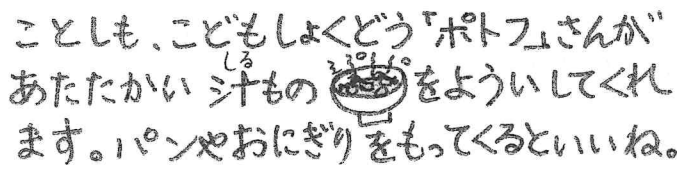 ことしも、こどもしょくどう「ポトフ」さんが
あたたかい 汁もの をよういしてくれ
しる
ます。パンやおにぎりをもってくるといいね。